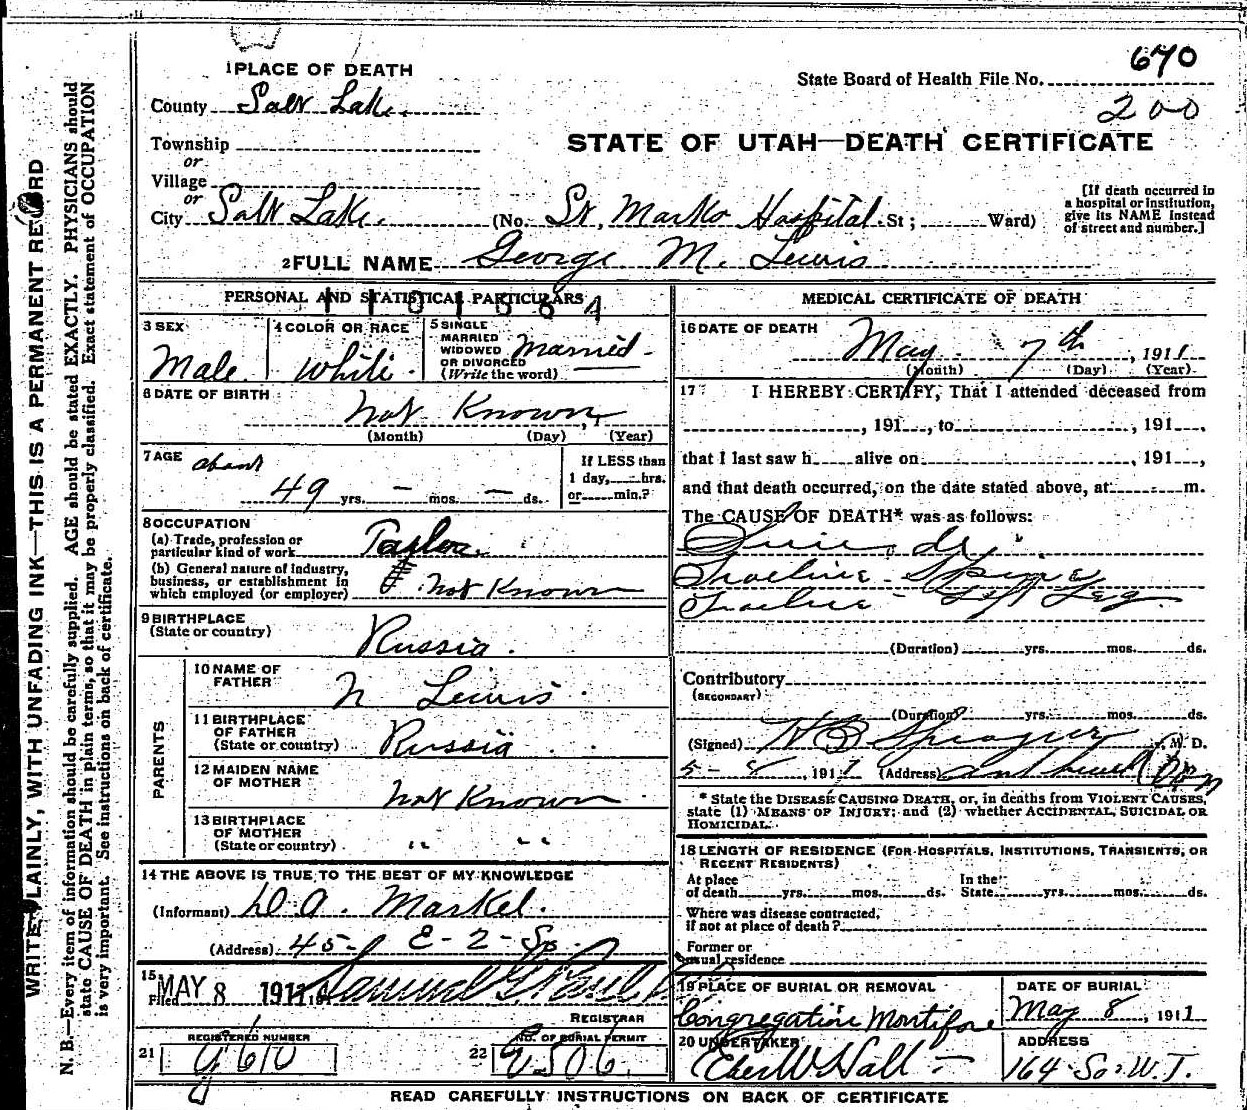 1 PLACE OF DEATH
County Salt Lake.
Township
or
Village
or
City Salt Lake. (No. St. Marks Hospital. St; Ward)
State Board of Health File No. 670
200
STATE OF UTAH—DEATH CERTIFICATE
[If death occurred in
a hospital or institution,
give its NAME instead
of street and number.]
2 FULL NAME George M. Lewis
WRITE PLAINLY, WITH UNFADING INK—THIS IS A PERMANENT RECORD
N. B.—Every item of information should be carefully supplied. AGE should be stated EXACTLY. PHYSICIANS should
state CAUSE OF DEATH in plain terms, so that it may be properly classified. Exact statement of OCCUPATION
is very important. See instructions on back of certificate.
PERSONAL AND STATISTICAL PARTICULARS
3 SEX
Male.
4 COLOR OR RACE
White.
5 SINGLE
MARRIED
WIDOWED
OR DIVORCED
(Write the word)
Married.
6 DATE OF BIRTH
Not Known
(Month) (Day) (Year)
7 AGE about
49 yrs. — mos. — ds.
If LESS than
1 day, hrs.
or min.?
8 OCCUPATION
(a) Trade, profession or
particular kind of work Taylor.
(b) General nature of industry,
business, or establishment in
which employed (or employer) Not Known
9 BIRTHPLACE
(State or country) Russia.
PARENTS
10 NAME OF
FATHER N Lewis.
11 BIRTHPLACE
OF FATHER
(State or country) Russia
12 MAIDEN NAME
OF MOTHER Not Known
13 BIRTHPLACE
OF MOTHER
(State or country) " "
14 THE ABOVE IS TRUE TO THE BEST OF MY KNOWLEDGE
(Informant) D.A. Markel.
(Address) E-2-So.
15
Filed MAY 8 1911 Samuel G. Paul
REGISTRAR
REGISTERED NUMBER
21
NO. OF BURIAL PERMIT
22
MEDICAL CERTIFICATE OF DEATH
16 DATE OF DEATH
May 7th, 1911
(Month) (Day) (Year)
17 I HEREBY CERTIFY, That I attended deceased from
, 191 , to , 191 ,
that I last saw h alive on , 191 ,
and that death occurred, on the date stated above, at m.
The CAUSE OF DEATH* was as follows:
Spine
Left Leg.
(Duration) yrs. mos. ds.
Contributory
(SECONDARY)
(Duration) yrs. mos. ds.
(Signed) H B Sprague M. D.
5-8, 1911 (Address)
* State the DISEASE CAUSING DEATH, or, in deaths from VIOLENT CAUSES,
state (1) MEANS OF INJURY; and (2) whether ACCIDENTAL, SUICIDAL OR
HOMICIDAL.
18 LENGTH OF RESIDENCE (FOR HOSPITALS, INSTITUTIONS, TRANSIENTS, OR
RECENT RESIDENTS)
At place
of death yrs. mos. ds.
In the
State yrs. mos. ds.
Where was disease contracted,
if not at place of death?
Former or
usual residence
19 PLACE OF BURIAL OR REMOVAL
Congregation Montifore
DATE OF BURIAL
May 8, 1911
20 UNDERTAKER
Eber W Hall
ADDRESS
164 So. W.T.
READ CAREFULLY INSTRUCTIONS ON BACK OF CERTIFICATE